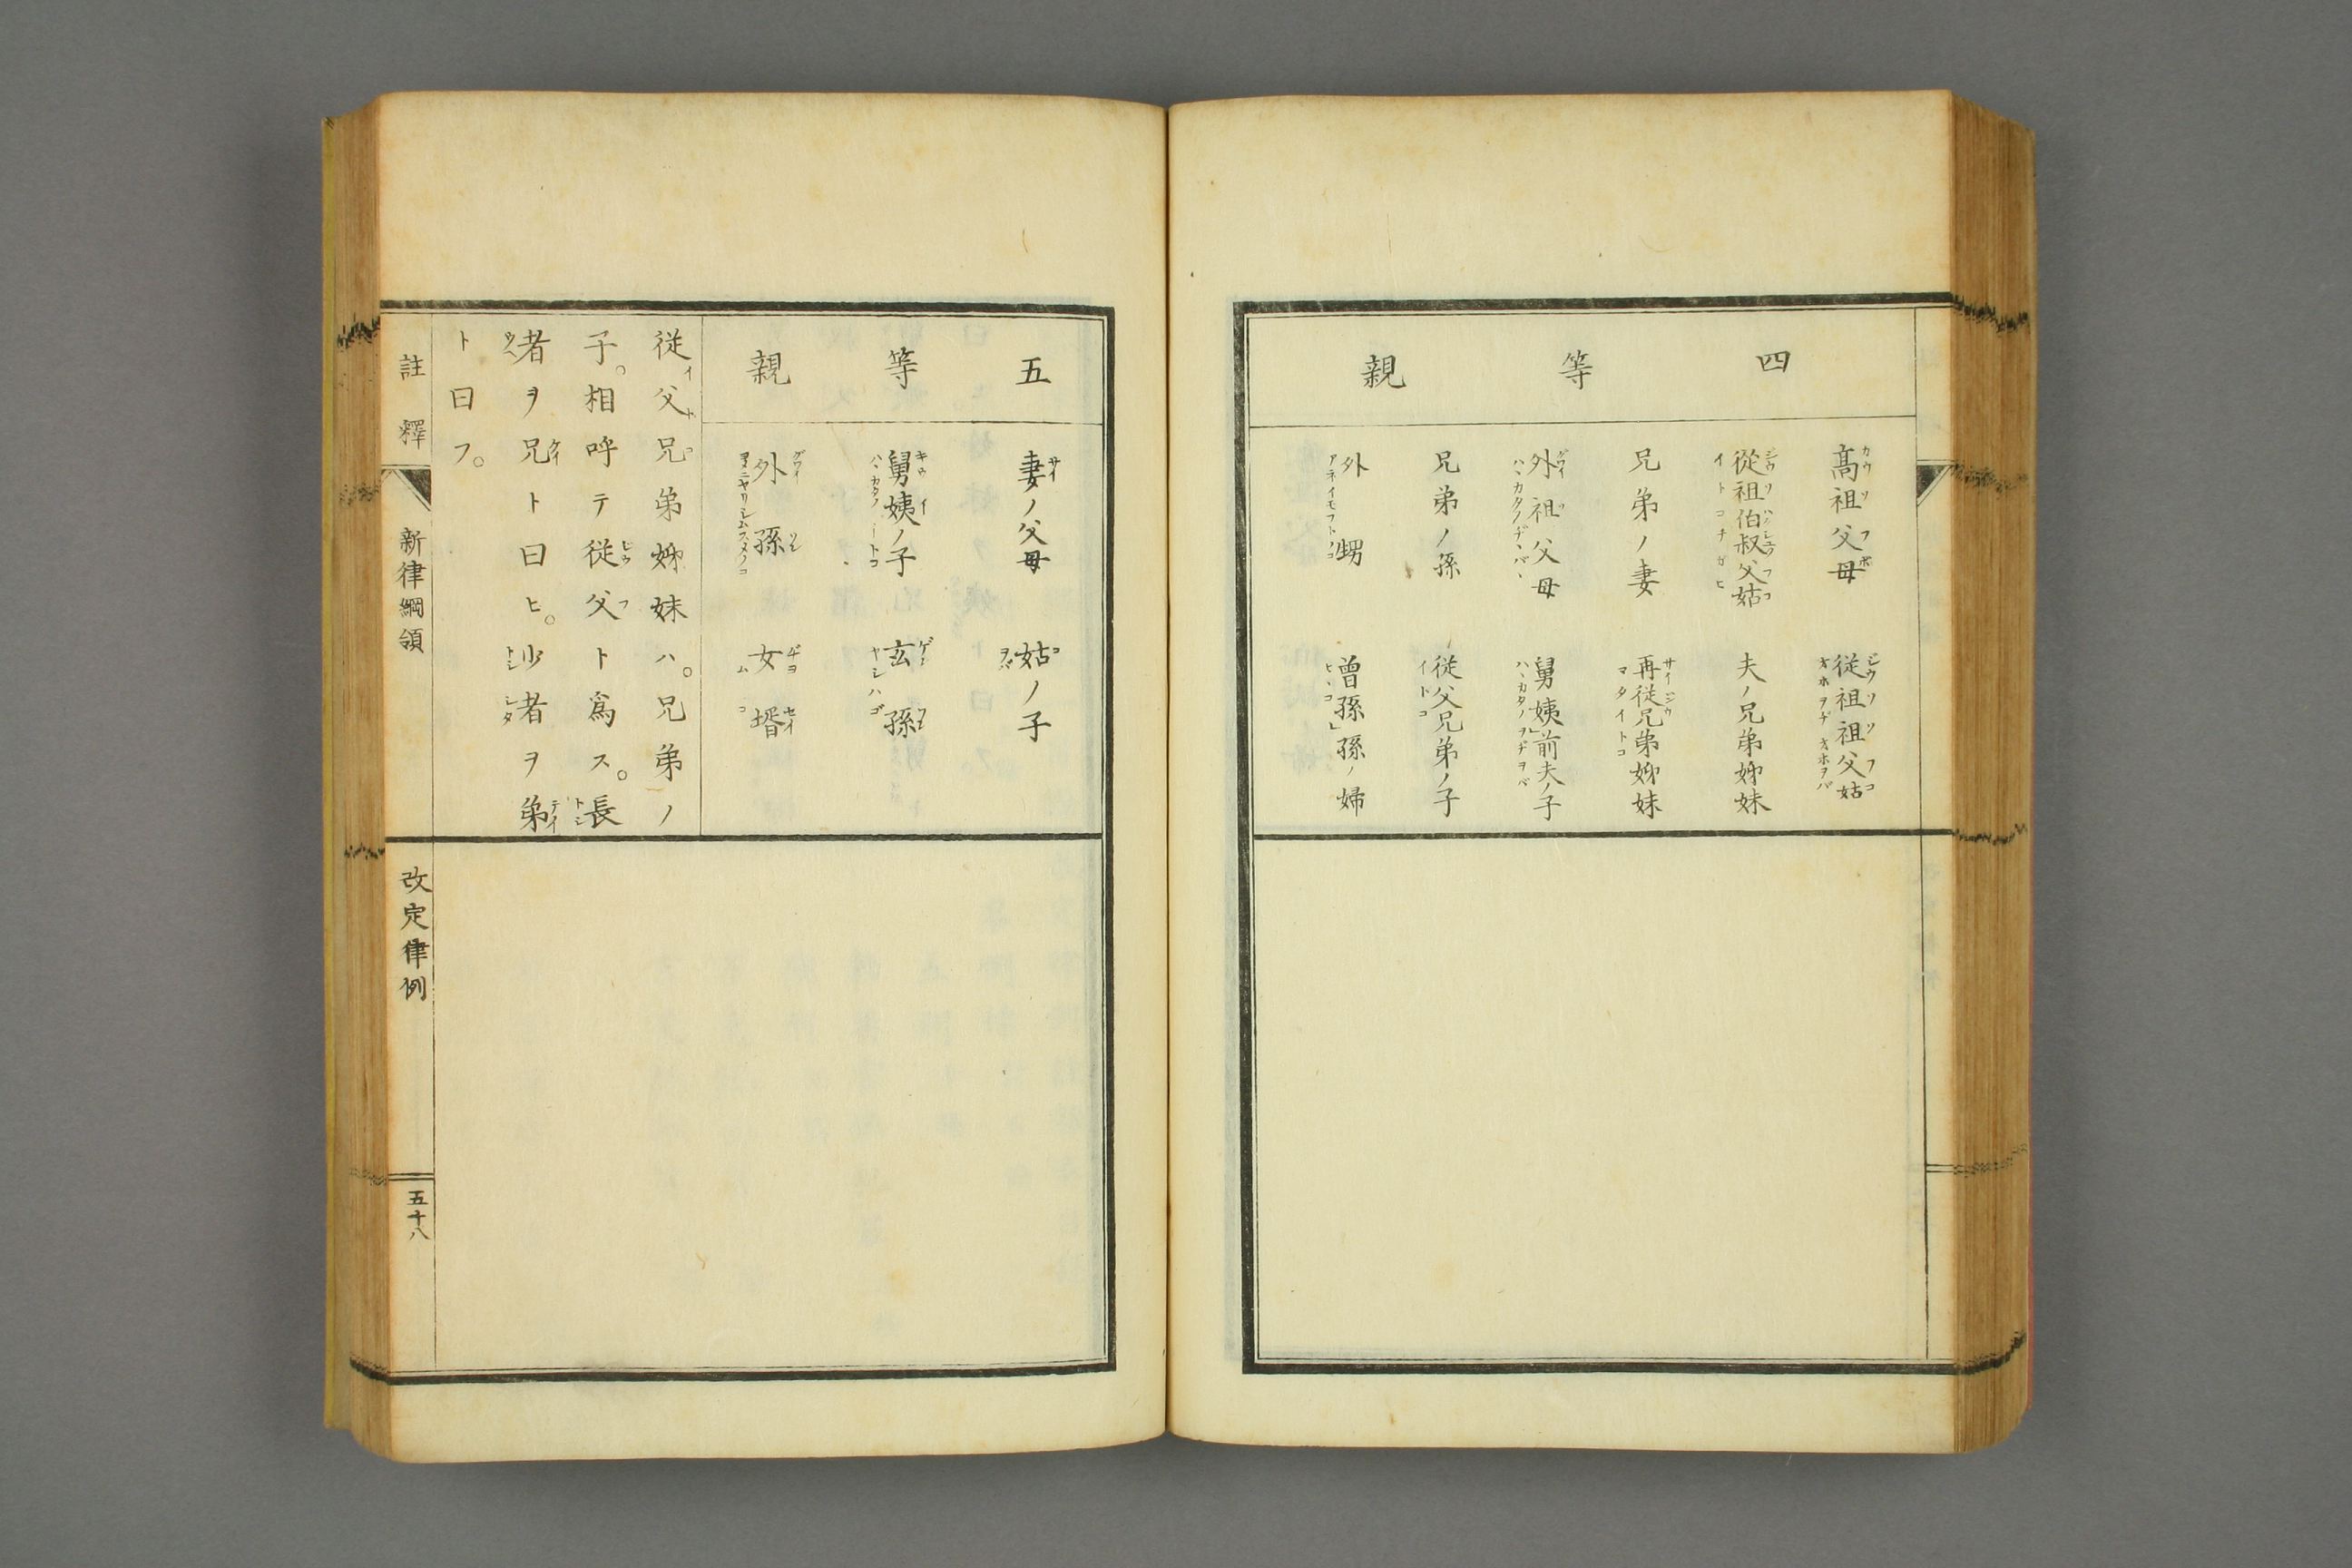 四等親
高祖父母
從祖祖父姑
從祖伯叔父姑
夫ノ兄弟姊妹
兄弟ノ妻
再從兄弟姊妹
外祖父母
舅姨」前夫ノ子
兄弟ノ孫
從父兄弟ノ子
外甥
曾孫」孫ノ婦
五等親
妻ノ父母
姑ノ子
舅姨ノ子
玄孫
外孫
女壻
從父兄弟姊妹ハ。兄弟ノ
子。相呼テ從父ト爲ス。長
者ヲ兄ト曰ヒ。少者ヲ弟
ト曰フ。
註釋
新律綱領
改定律例
五十八